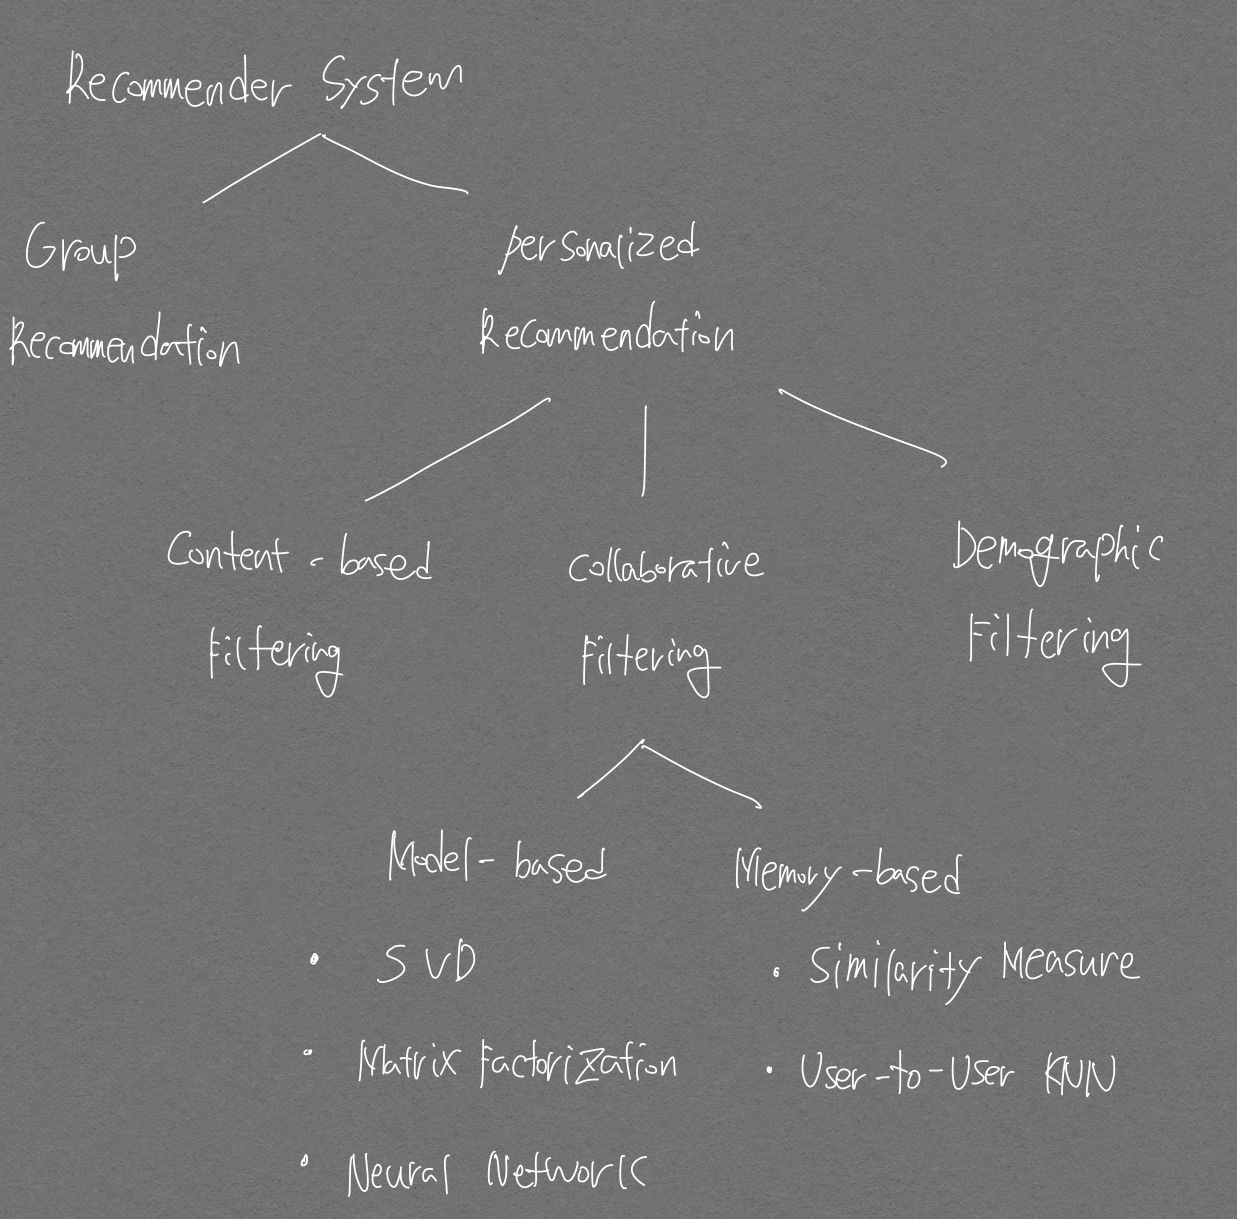 Recommender System
Group
Recommendation
personalized
Recommendation
Content-based
Filtering
Collaborative
Filtering
Demographic
Filtering
Model-based
• SVD
• Matrix Factorization
• Neural Network
Memory-based
• Similarity Measure
• User-to-User KNN